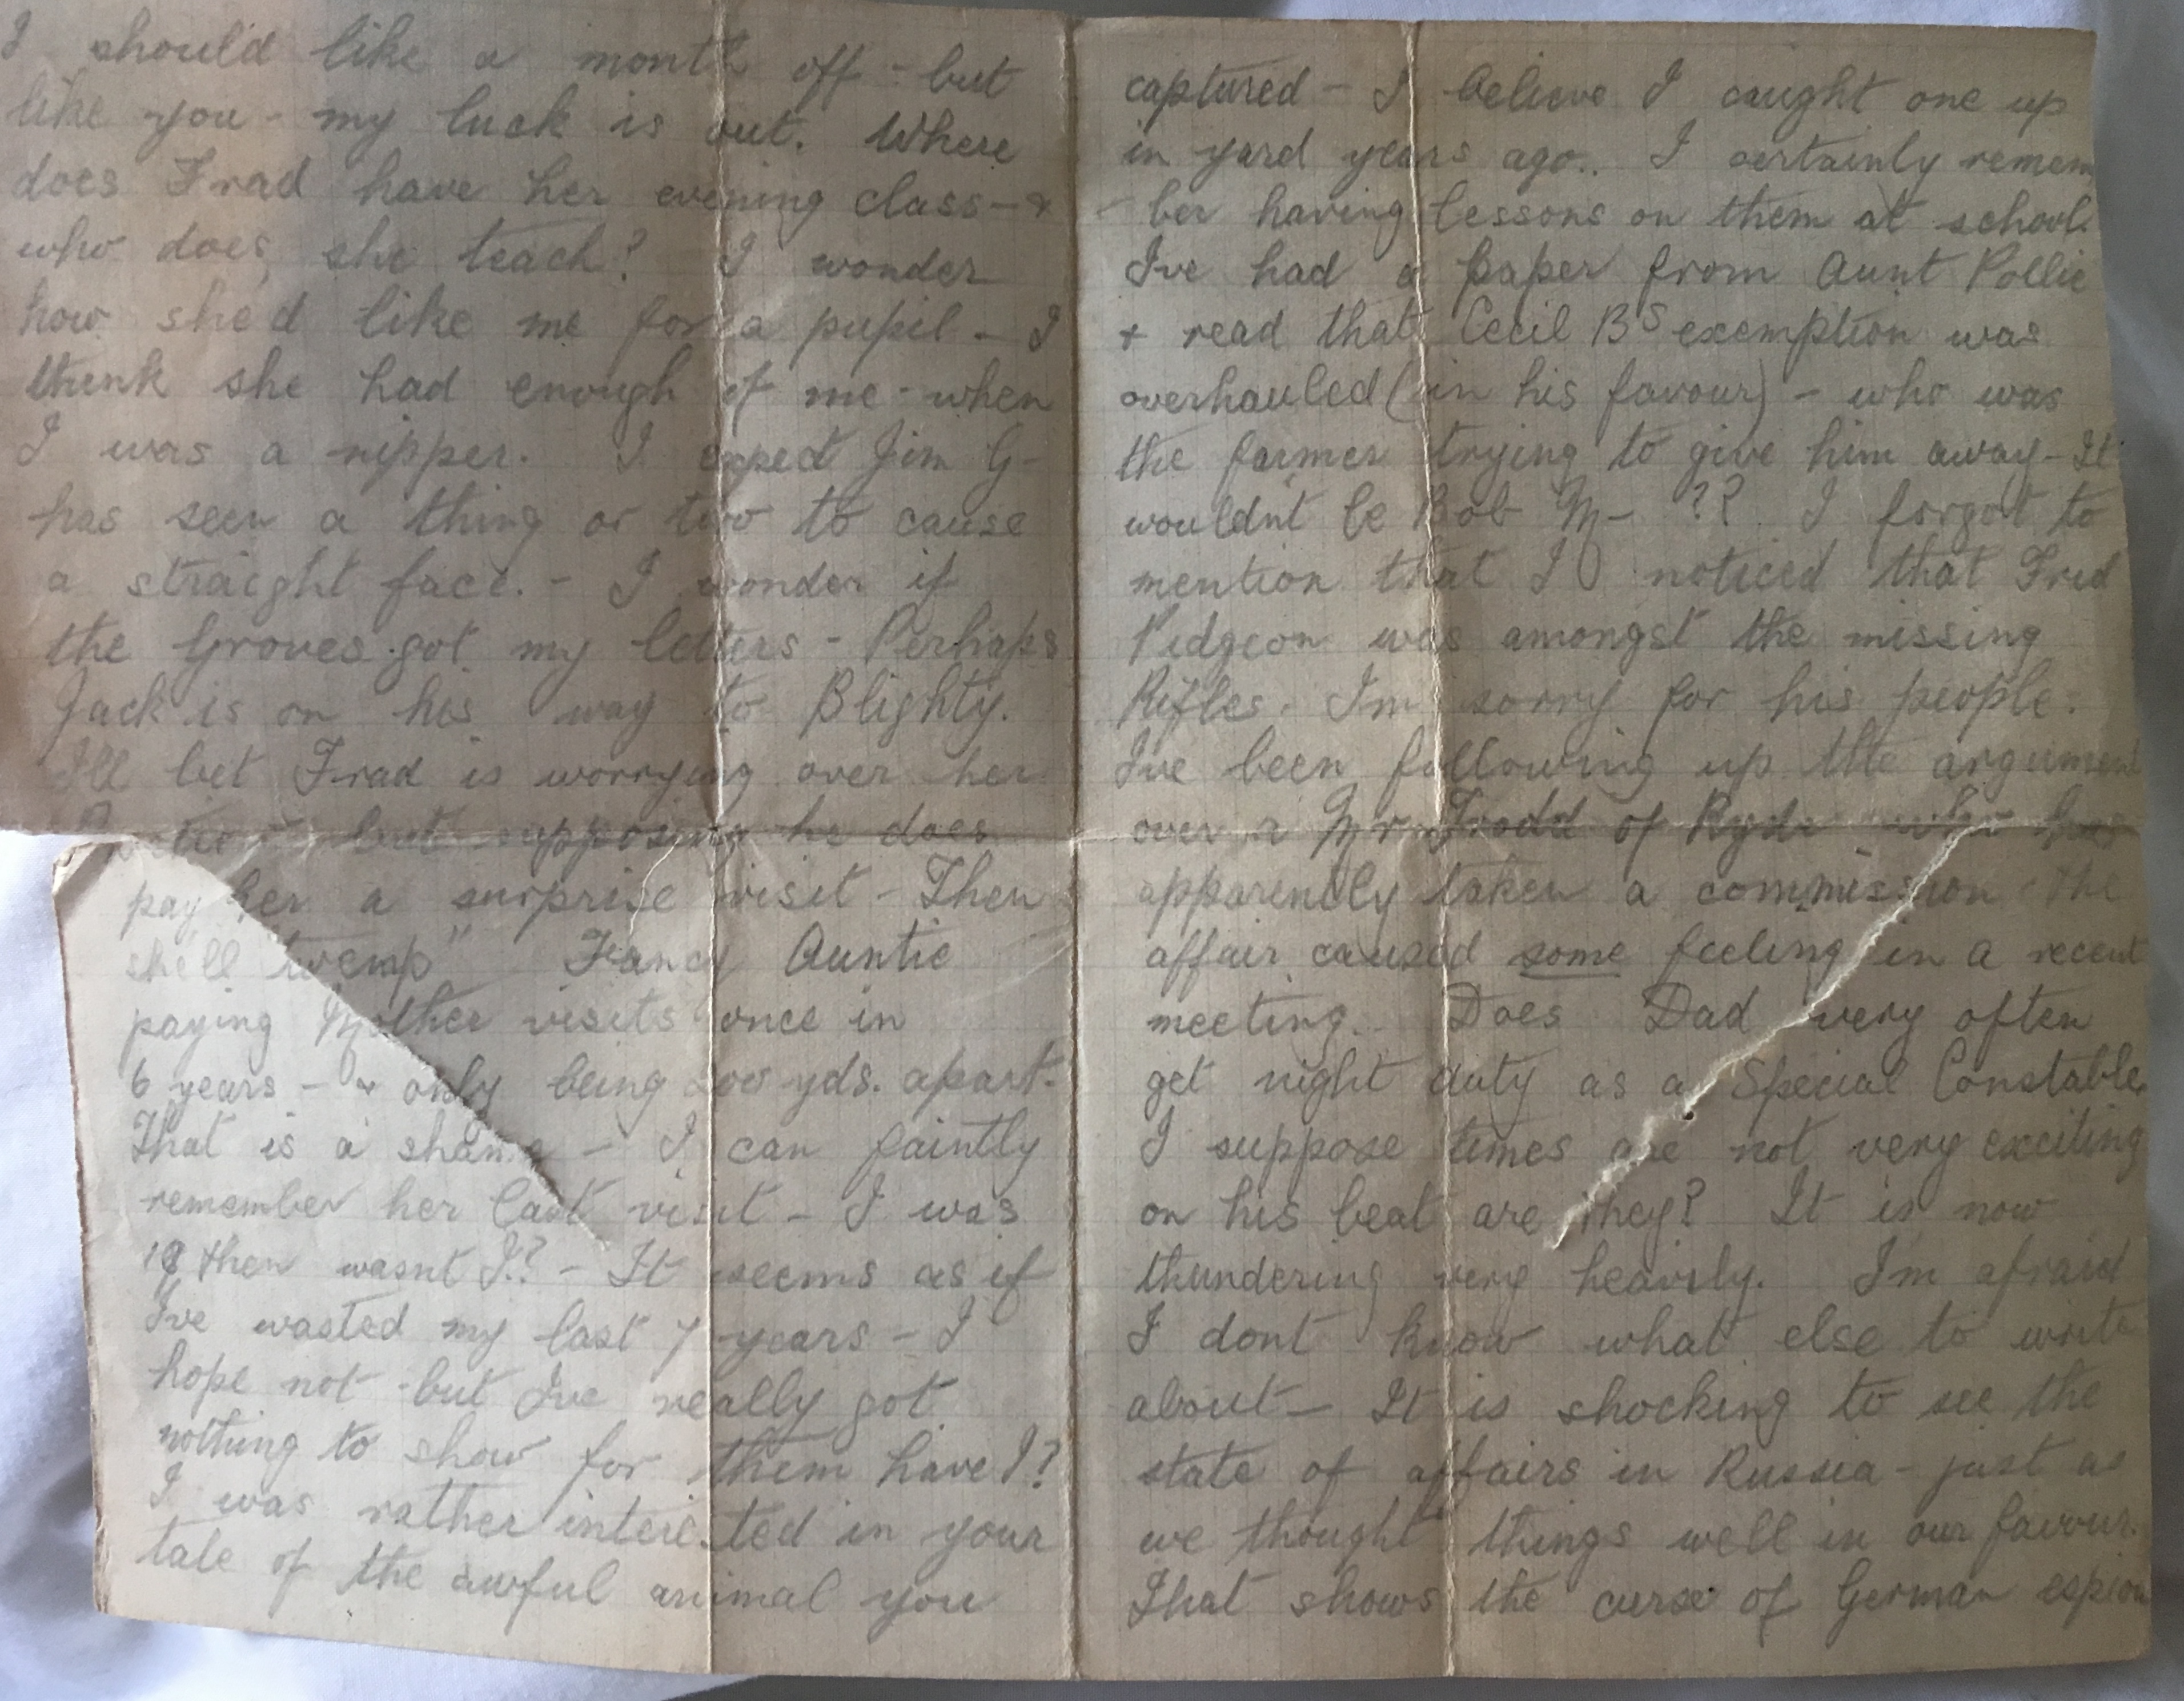 I should like a month off - but
like you - my luck is out. Where
does Frad have her evening class - &
who does she teach? I wonder
how she'd like me for a pupil - I
think she had enough of me - when
I was a nipper. I Jim G-
has seen a thing or two to cause
a straight face. - I wonder if
the Groves got my letters - Perhaps
Jack is on his way to Blighty.
I'll bet Frad is worrying over her
but supposing he does
pay her a surprise visit - Then
she'll "
Fancy Auntie
paying Mother visits once in
6 years - & only being 200 yds. apart.
That is a shame - I can faintly
remember her last visit - I was
then wasnt I? - It seems as if
I've wasted my last 7 years - I
hope not - but I've really got
nothing to show for them have I?
I was rather interested in your
tale of the awful animal you
captured - I believe I caught one up
in yard years ago.. I certainly remem
- ber having lessons on them at school.
I've had a paper from Aunt Pollie
+ read that Cecil Bs exemption was
overhauled (in his favour) - who was
the farmer trying to give him away - It
wouldnt be Bob M- ??. I forgot to
mention that I noticed that Fred
Pidgeon was amongst the missing
Rifles. I'm sorry for his people.
I've been following up the argument
over a Mr Frodd of Ryde who has
apparently taken a commission - the
affair caused some feeling in a recent
meeting. Does Dad very often
get night duty as a Special Constable
I suppose times are not very exciting
on his beat are they? It is now
thundering very heavily. I'm afraid
I dont know what else to write
about - It is shocking to see the
state of affairs in Russia - just as
we thought things well in our favour.
That shows the curse of German espion